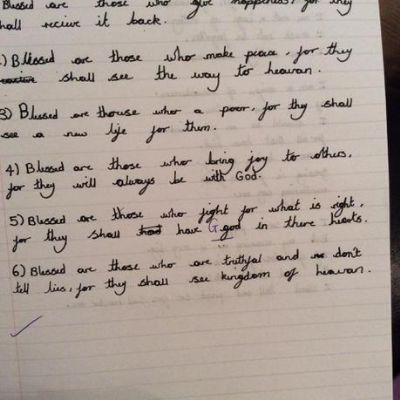 Blessed are those who give happiness, for they
hall recieve it back.
) Blessed are those who make peace, for they
shall see the way to heavan.
3) Blessed are thouse whor a poor, for thy shall
see a new life for them.
4) Blessed are those who bring joy to others,
for they will always be with God.
5) Blessed are those who fight for what is right,
for they shall have G god in there hearts.
6) Blessed are those who are truthful and don't
tell lies, for they shall see kingdom of heavan.